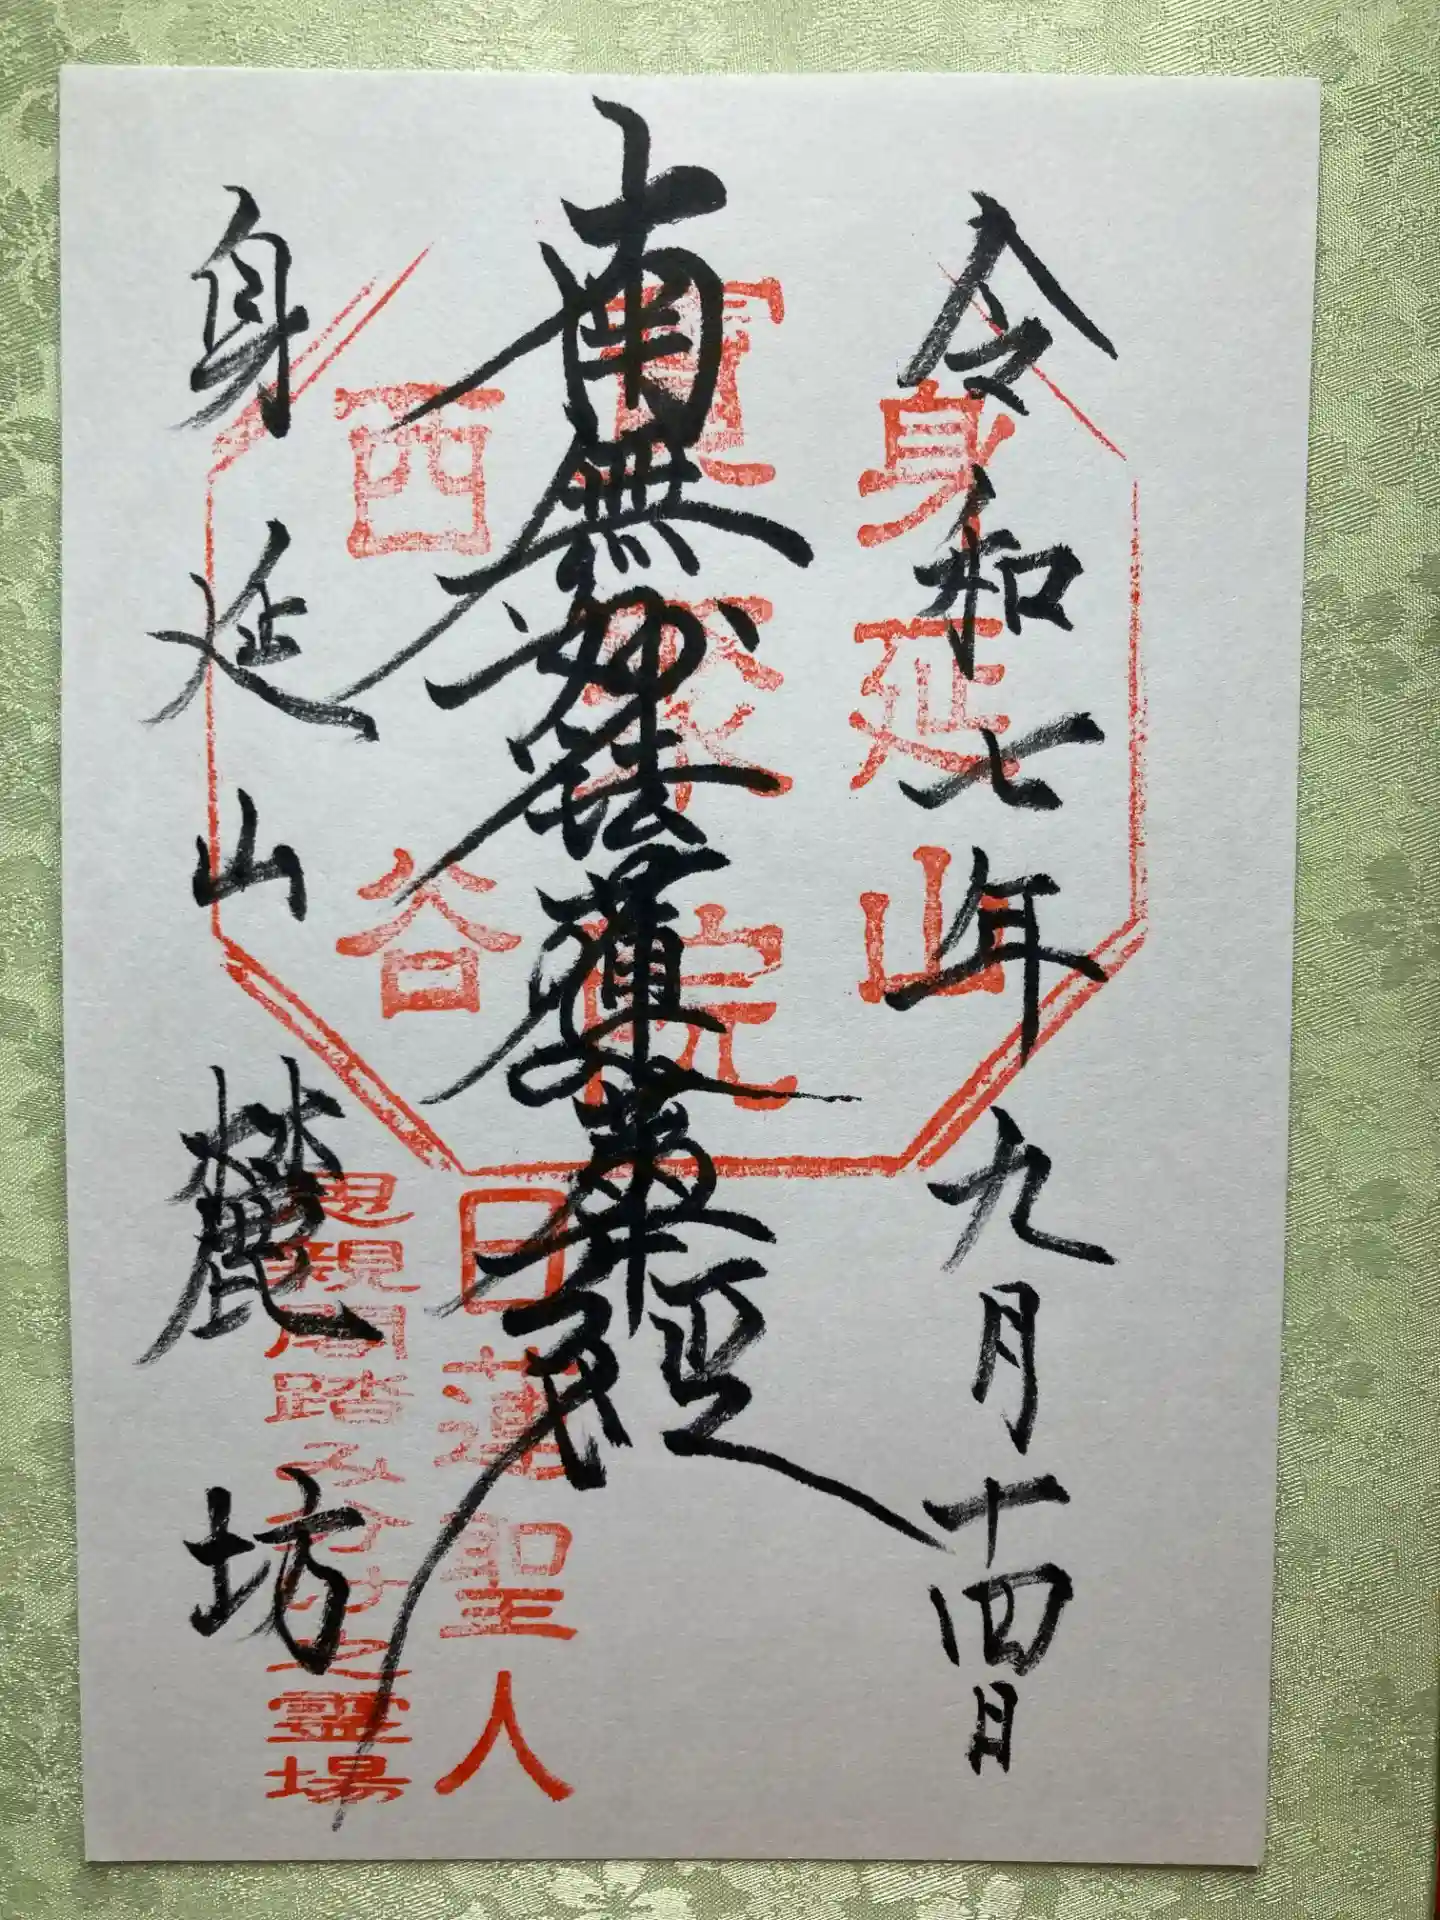 令和七年九月十四日
南無妙法蓮華経
身延山麓坊
身延山
院
西谷
日蓮聖人
思親閣踏み分け之霊場